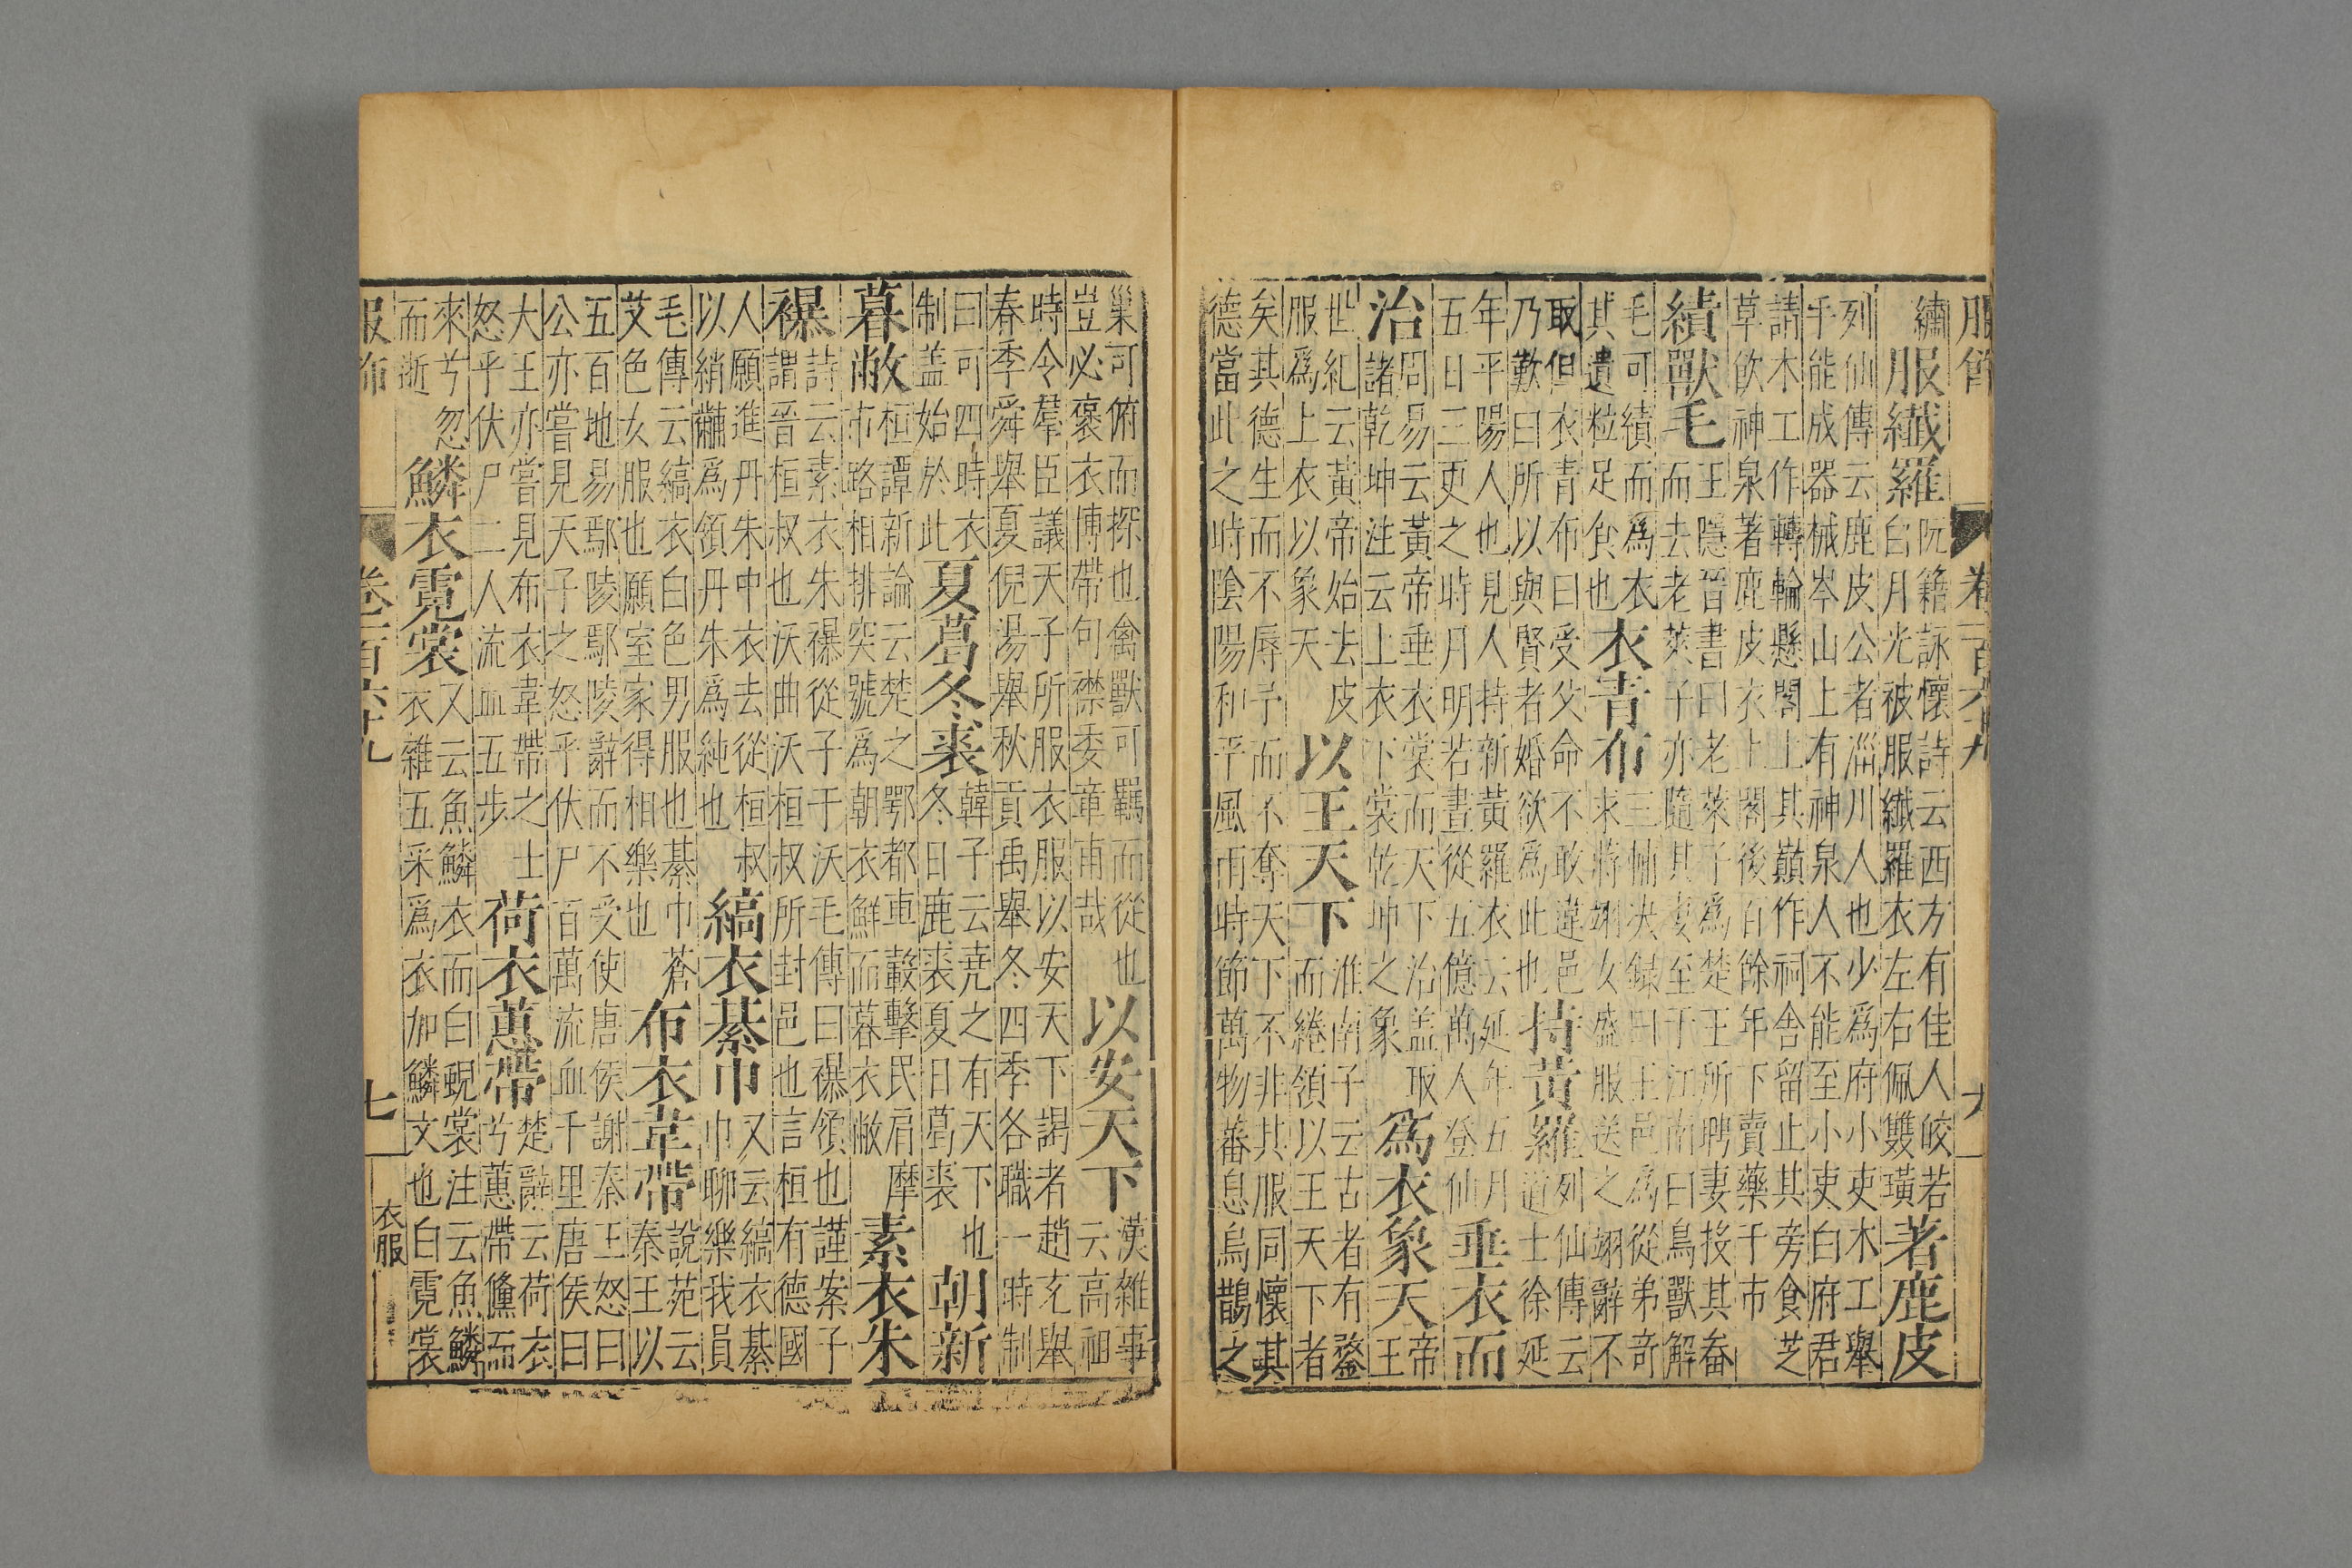 服飾 卷一百六十九 六
繡服纖羅阮籍詠懷詩云西方有佳人皎若白月光被服纖羅衣左右佩雙璜著鹿皮
列仙傳云鹿皮公者淄川人也少爲府小吏木工舉手能成器械岑山上有神泉人不能至小吏白府君
請木工作轉輪懸閣上其巔作祠舍留止其旁食芝草飲神泉著鹿皮衣上閣後百餘年下賣藥于市
績獸毛王隱晉書曰老萊子爲楚王所聘妻投其畚而去老萊子亦隨其妻至于江南曰鳥獸解
毛可績而爲衣其遺粒足食也衣青布三輔決録曰王邑爲從弟奇求蔣翊女盛服送之翊辭不
取但衣青布曰受父命不敢違邑乃歎曰所以與賢者婚欲爲此也持黃羅列仙傳云道士徐延
年平陽人也見人持新黃羅衣云延年五月五日三更之時月明若晝從五億萬人登仙垂衣而
治周易云黃帝垂衣裳而天下治蓋取諸乾坤注云上衣下裳乾坤之象爲衣象天帝王
世紀云黃帝始去皮服爲上衣以象天以王天下淮南子云古者有鍪而綣領以王天下者
矣其德生而不辱予而不奪天下不非其服同懷其德當此之時陰陽和平風雨時節萬物蕃息烏鵲之
巢可俯而探也禽獸可羈而從也豈必褒衣博帶句襟委章甫哉以安天下漢雜事云高祖
時令羣臣議天子所服衣服以安天下謁者趙堯舉春季舜舉夏倪湯舉秋貢禹舉冬四季各職一時制
曰可四時衣制盖始於此夏葛冬裘韓子云堯之有天下也冬日鹿裘夏日葛裘朝新
暮敝桓譚新論云楚之鄂都車轂擊民肩摩市路相排突號爲朝衣鮮而暮衣敝素衣朱
襮詩云素衣朱襮從子于沃毛傳曰襮領也謹案子謂晉桓叔也沃曲沃桓叔所封邑也言桓有德國
人願進丹朱中衣去從桓叔以綃黼爲領丹朱爲純也縞衣綦巾又云縞衣綦巾聊樂我員
毛傳云縞衣白色男服也綦巾蒼艾色女服也願室家得相樂也布衣韋帶說苑云秦王以
五百地易鄢陵鄢陵辭而不受使唐侯謝秦王怒曰公亦嘗見天子之怒乎伏尸百萬流血千里唐侯曰
大王亦嘗見布衣韋帶之士怒乎伏尸二人流血五步荷衣蕙帶楚辭云荷衣兮蕙帶儵而
來兮忽而逝鱗衣霓裳又云魚鱗衣而白蜺裳注云魚鱗衣雜五采爲衣加鱗文也白霓裳
服飾 卷一百六十九 七 衣服